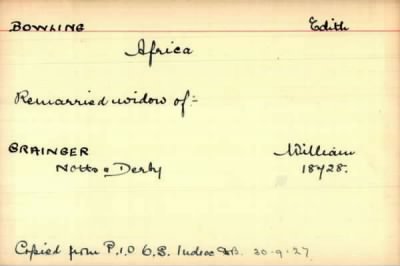 BOWLING Edith
Africa
Remarried widow of:-
GRAINGER William
Notts & Derby 18428.
Copied from P.1.0 6.S. Index 30-9-27